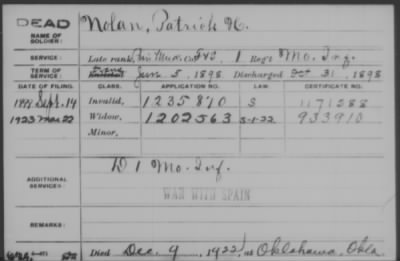 DEAD
Nolan, Patrick H.
NAME OF SOLDIER:
SERVICE: Late rank, Co. 1 Reg't Mo. Inf.
TERM OF SERVICE: Jun. 5, 1898 Discharged Oct 31, 1898
DATE OF FILING. CLASS. APPLICATION NO. LAW. CERTIFICATE NO.
1899 Sept. 14 Invalid, 1235870 S 1171288
1923 Widow, 1202563 5-1-22 933910
Minor,
ADDITIONAL SERVICES: D 1 Mo. Inf.
WAR WITH SPAIN
REMARKS:
Died Dec. 9, 1922, at Oklahoma, Okla.